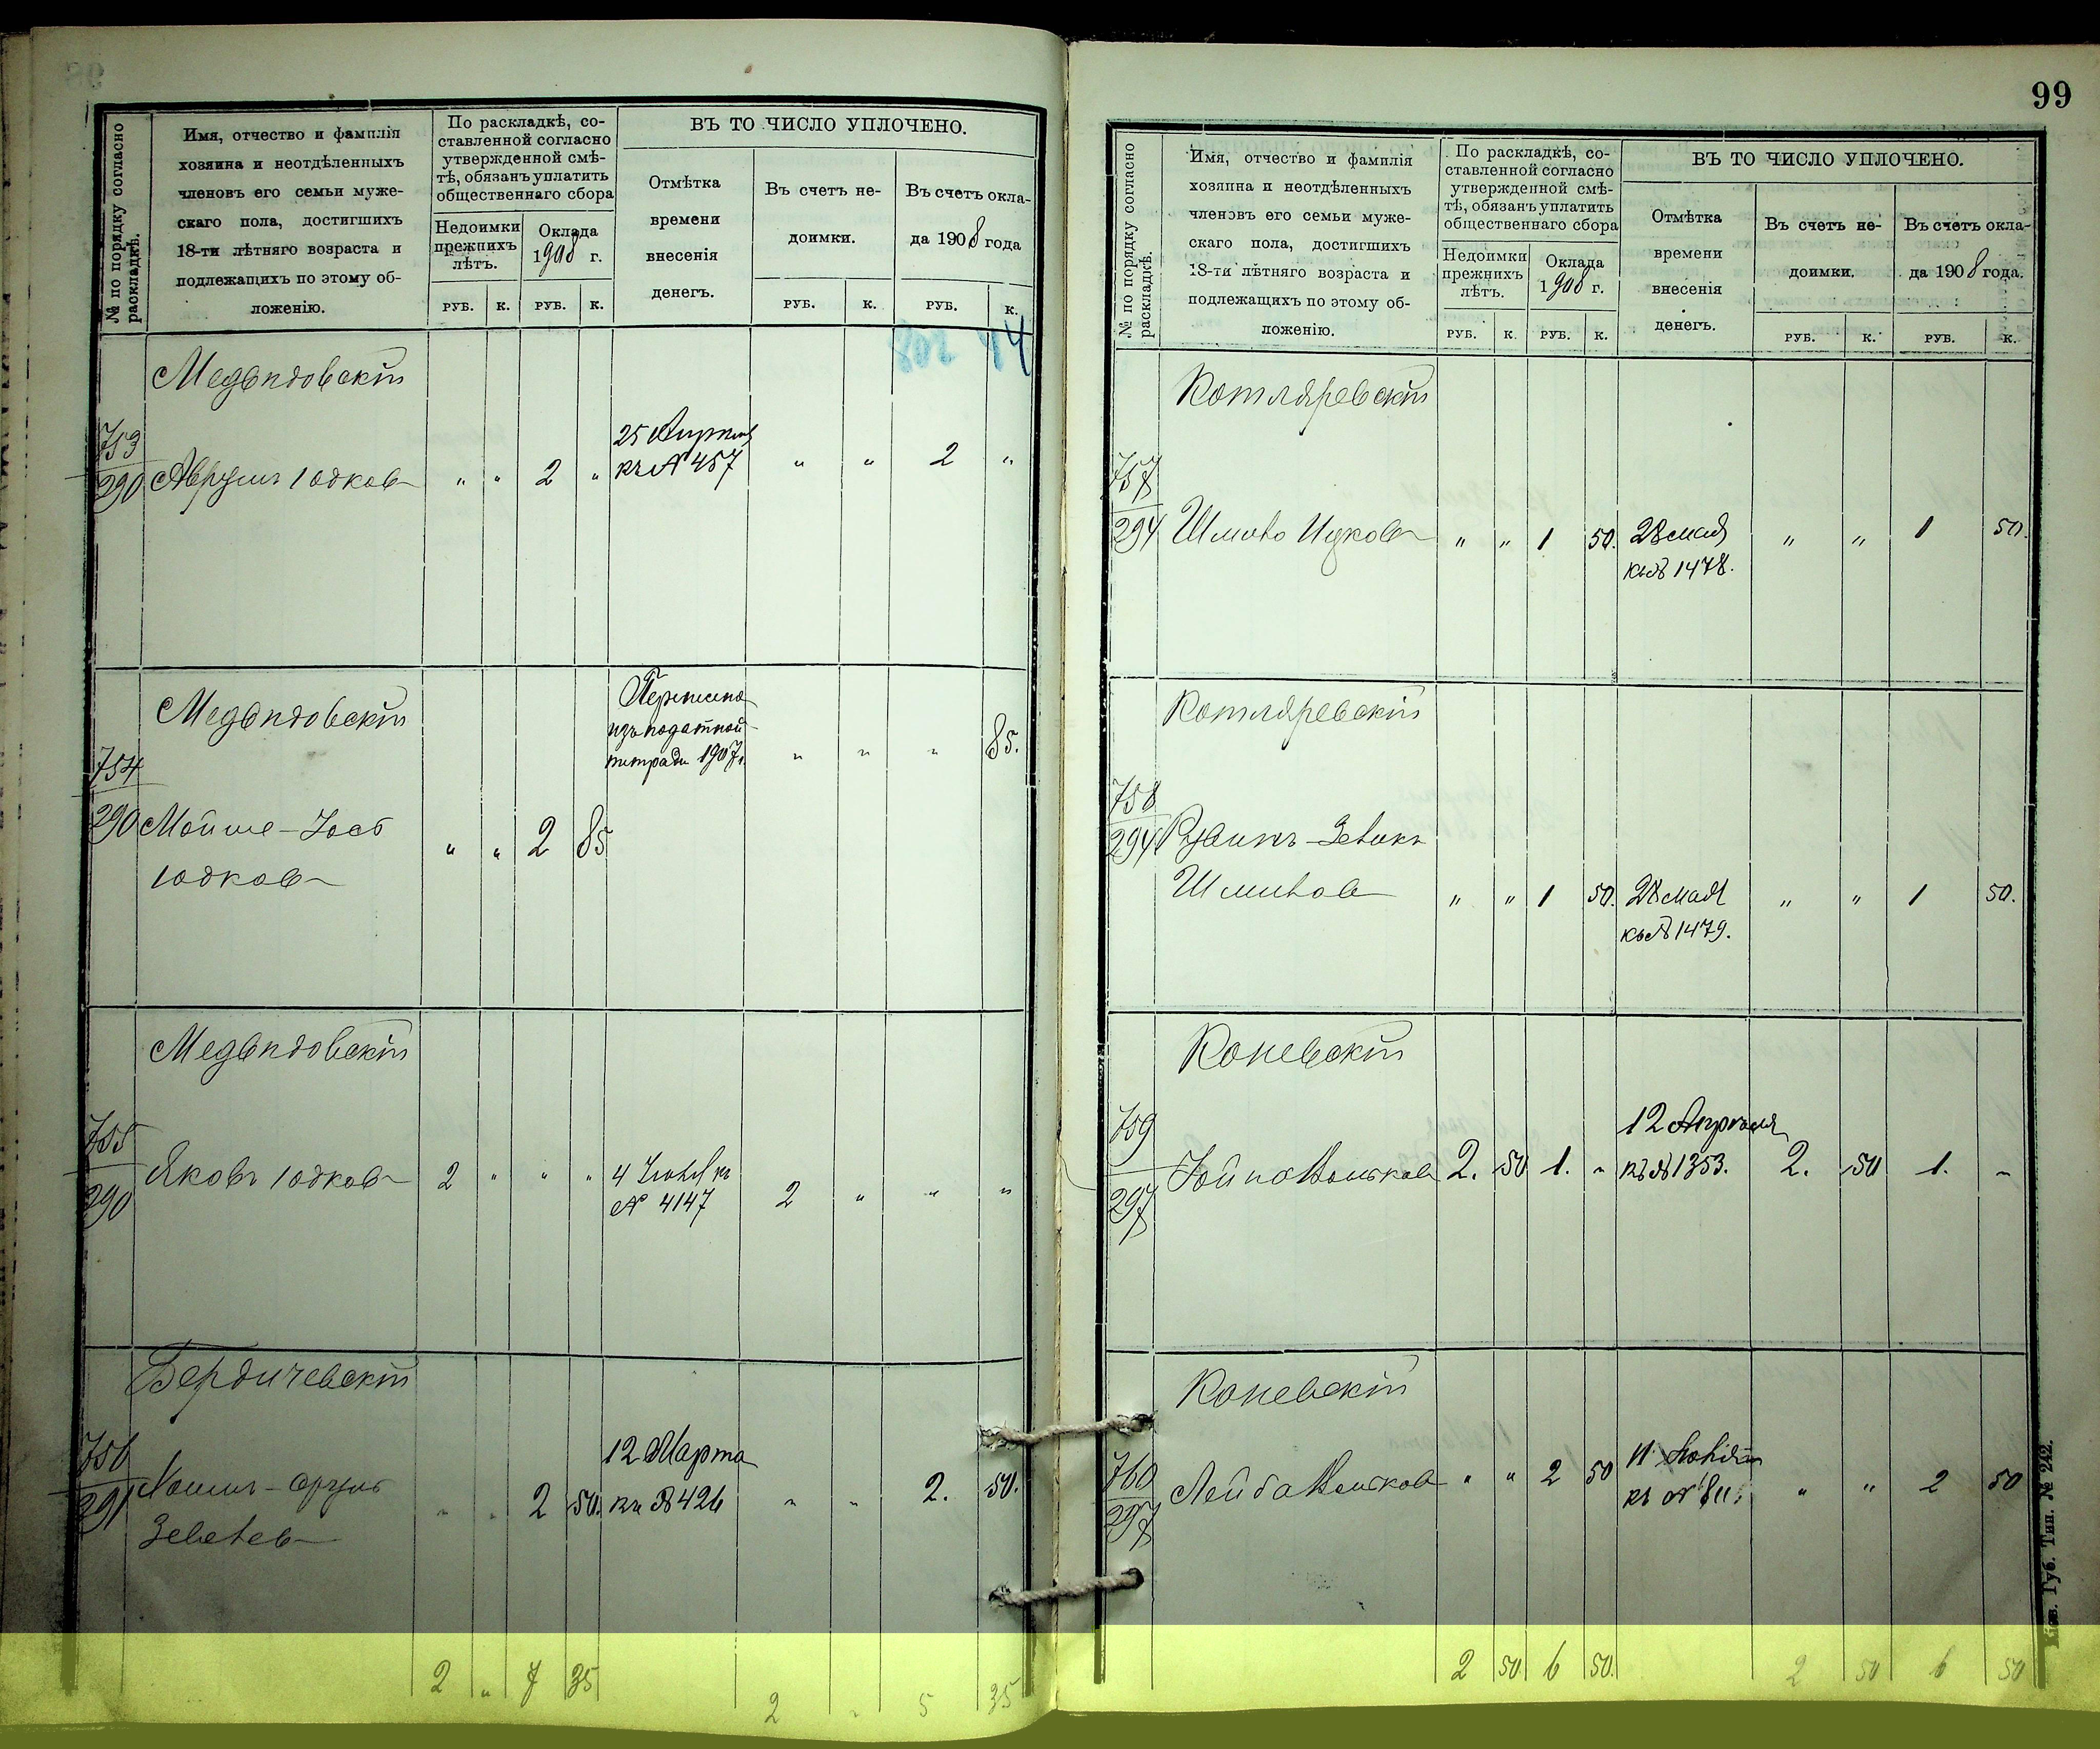 № по порядку согласно раскладкѣ.
Имя, отчество и фамилія
хозяина и неотдѣленныхъ
членовъ его семьи муже-
скаго пола, достигшихъ
18-ти лѣтняго возраста и
подлежащихъ по этому об-
ложенію.
По раскладкѣ, со-
ставленной согласно
утвержденной смѣ-
тѣ, обязанъ уплатить
общественнаго сбора
Недоимки
прежнихъ
лѣтъ.
Оклада
1908 г.
РУБ. К. РУБ. К.
ВЪ ТО ЧИСЛО УПЛОЧЕНО.
Отмѣтка
времени
внесенія
денегъ.
Въ счетъ не-
доимки.
Въ счетъ окла-
да 1908 года
РУБ. К. РУБ. К.
44
Медвѣдовскій
753
290 Аврумъ Юдковъ " " 2 " 25 Апрѣля
къ № 457 " " 2 "
Медвѣдовскій
754
290 Мойше-Іось
Юдковъ " " 2 85
изъ податной
тетради 1907г. " " " 85.
Медвѣдовскій
755
290 Яковъ Юдковъ 2 " " " 4 къ
№ 4147 2 " " "
Бердичевскій
756
291 Зевевъ " " 2 50. 12 Марта
къ № 426 " " 2. 50.
2 " 7 35 2 " 5 35
99
№ по порядку согласно раскладкѣ.
Имя, отчество и фамилія
хозяина и неотдѣленныхъ
членовъ его семьи муже-
скаго пола, достигшихъ
18-ти лѣтняго возраста и
подлежащихъ по этому об-
ложенію.
По раскладкѣ, со-
ставленной согласно
утвержденной смѣ-
тѣ, обязанъ уплатить
общественнаго сбора
Недоимки
прежнихъ
лѣтъ.
Оклада
1908 г.
РУБ. К. РУБ. К.
ВЪ ТО ЧИСЛО УПЛОЧЕНО.
Отмѣтка
времени
внесенія
денегъ.
Въ счетъ не-
доимки.
Въ счетъ окла-
да 1908 года.
РУБ. К. РУБ. К.
Котляревскій
757
294 Ицковъ " " 1 50. 28 мая
къ № 1478. " " 1 50.
Котляревскій
758
294
" " 1 50. 28 мая " " 1 50.
къ № 1479.
Каневскій
759
297 2. 50 1. " 12 Апрѣля
къ № 1353. 2. 50 1. "
Каневскій
760
297 Лейба " " 2 50
къ № 811. " " 2 50
2 50 6 50. 2 50 6 50
Кіев. Губ. Тип. № 242.